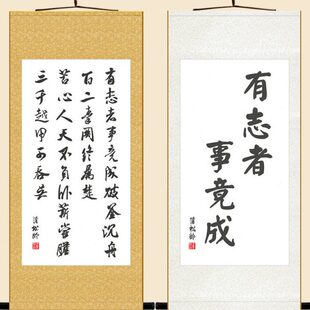 有志者事竟成破釜沉舟
百二秦關终屬楚
苦心人天不負卧薪嘗膽
三千越甲可吞吴
蒲松龄
有志者
事竟成
蒲松龄